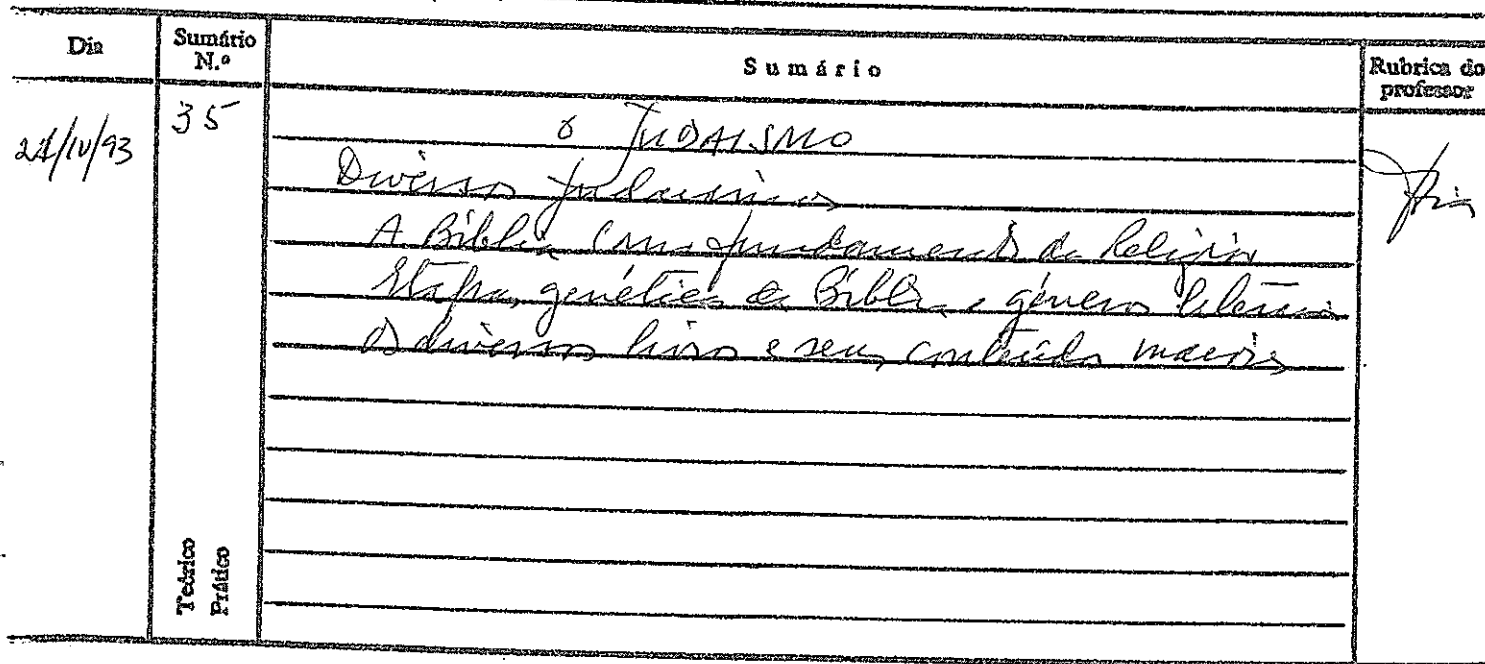 Dia
Sumário N.º
Sumário
Rubrica do professor
35
O JUDAISMO
Diversos judaismos
A Bíblia como fundamento da Religião
Etapas genéticas da Bíblia e géneros literários
Os diversos livros e seus conteúdos maiores
Teórico
Prático